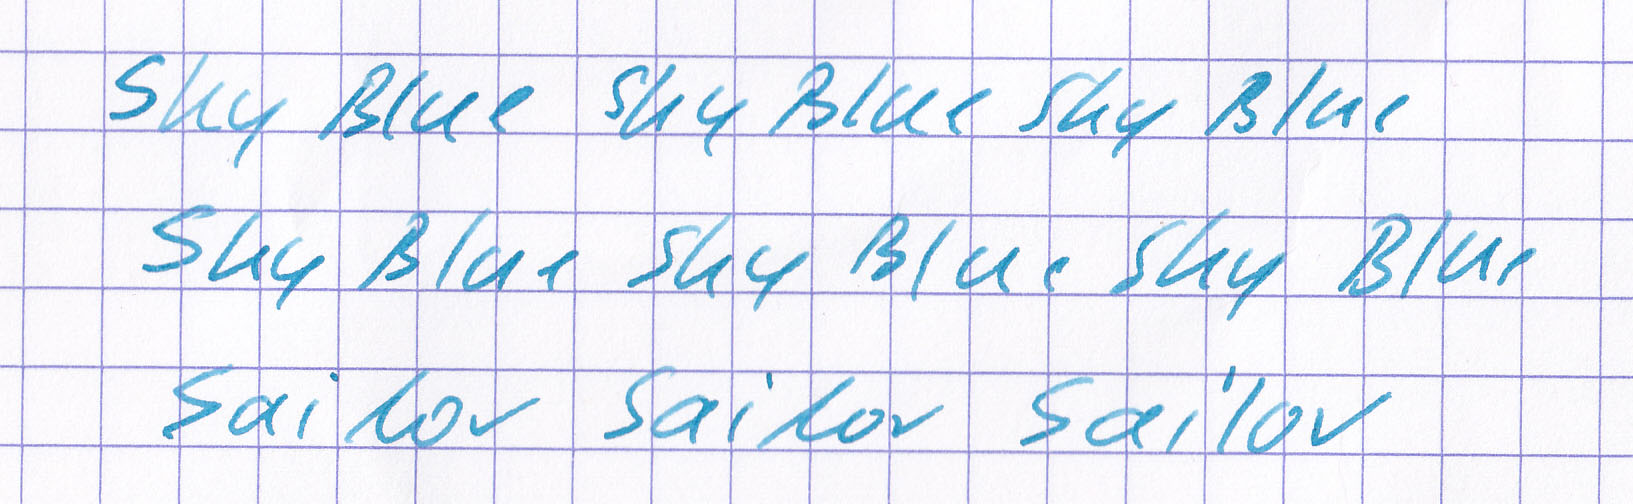 Sky Blue Sky Blue Sky Blue
Sky Blue Sky Blue Sky Blue
Sailor Sailor Sailor